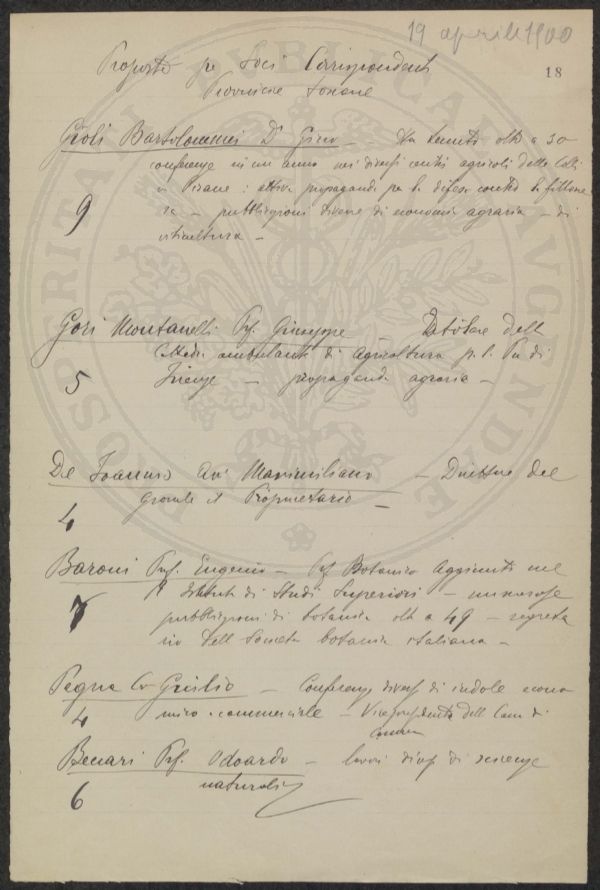 19 aprile 1900
18
Proposte per Soci Corrispondenti
Provincie toscane
Gioli Bartolommei Dr Gino — Ha tenuto oltre a 30
conferenze in un anno nei diversi centri agricoli delle Colli
ne Pisane: attiva propaganda per la difesa contro la fillosse
ra — pubblicazioni diverse di economia agraria — di
viticoltura —
9
Gori Montanelli Prof. Giuseppe Titolare della
Cattedra ambulante di Agricoltura p. l. Pr. di
Firenze — propaganda agraria —
5
De Joannis Avv Massimiliano — Direttore del
giornale il Proprietario —
4
Baroni Prof. Eugenio — Prof Botanico Aggiunto nel
R Istituto di Studi Superiori — numerose
pubblicazioni di botanica oltre a 49 — segreta
rio della Società botanica italiana —
7
Pegna Giulio — Conferenze diverse di indole econo
mico-commerciale — Vicepresidente della Cam di
Comm
4
Beccari Prof. Odoardo — lavori diversi di scienze
naturali
6